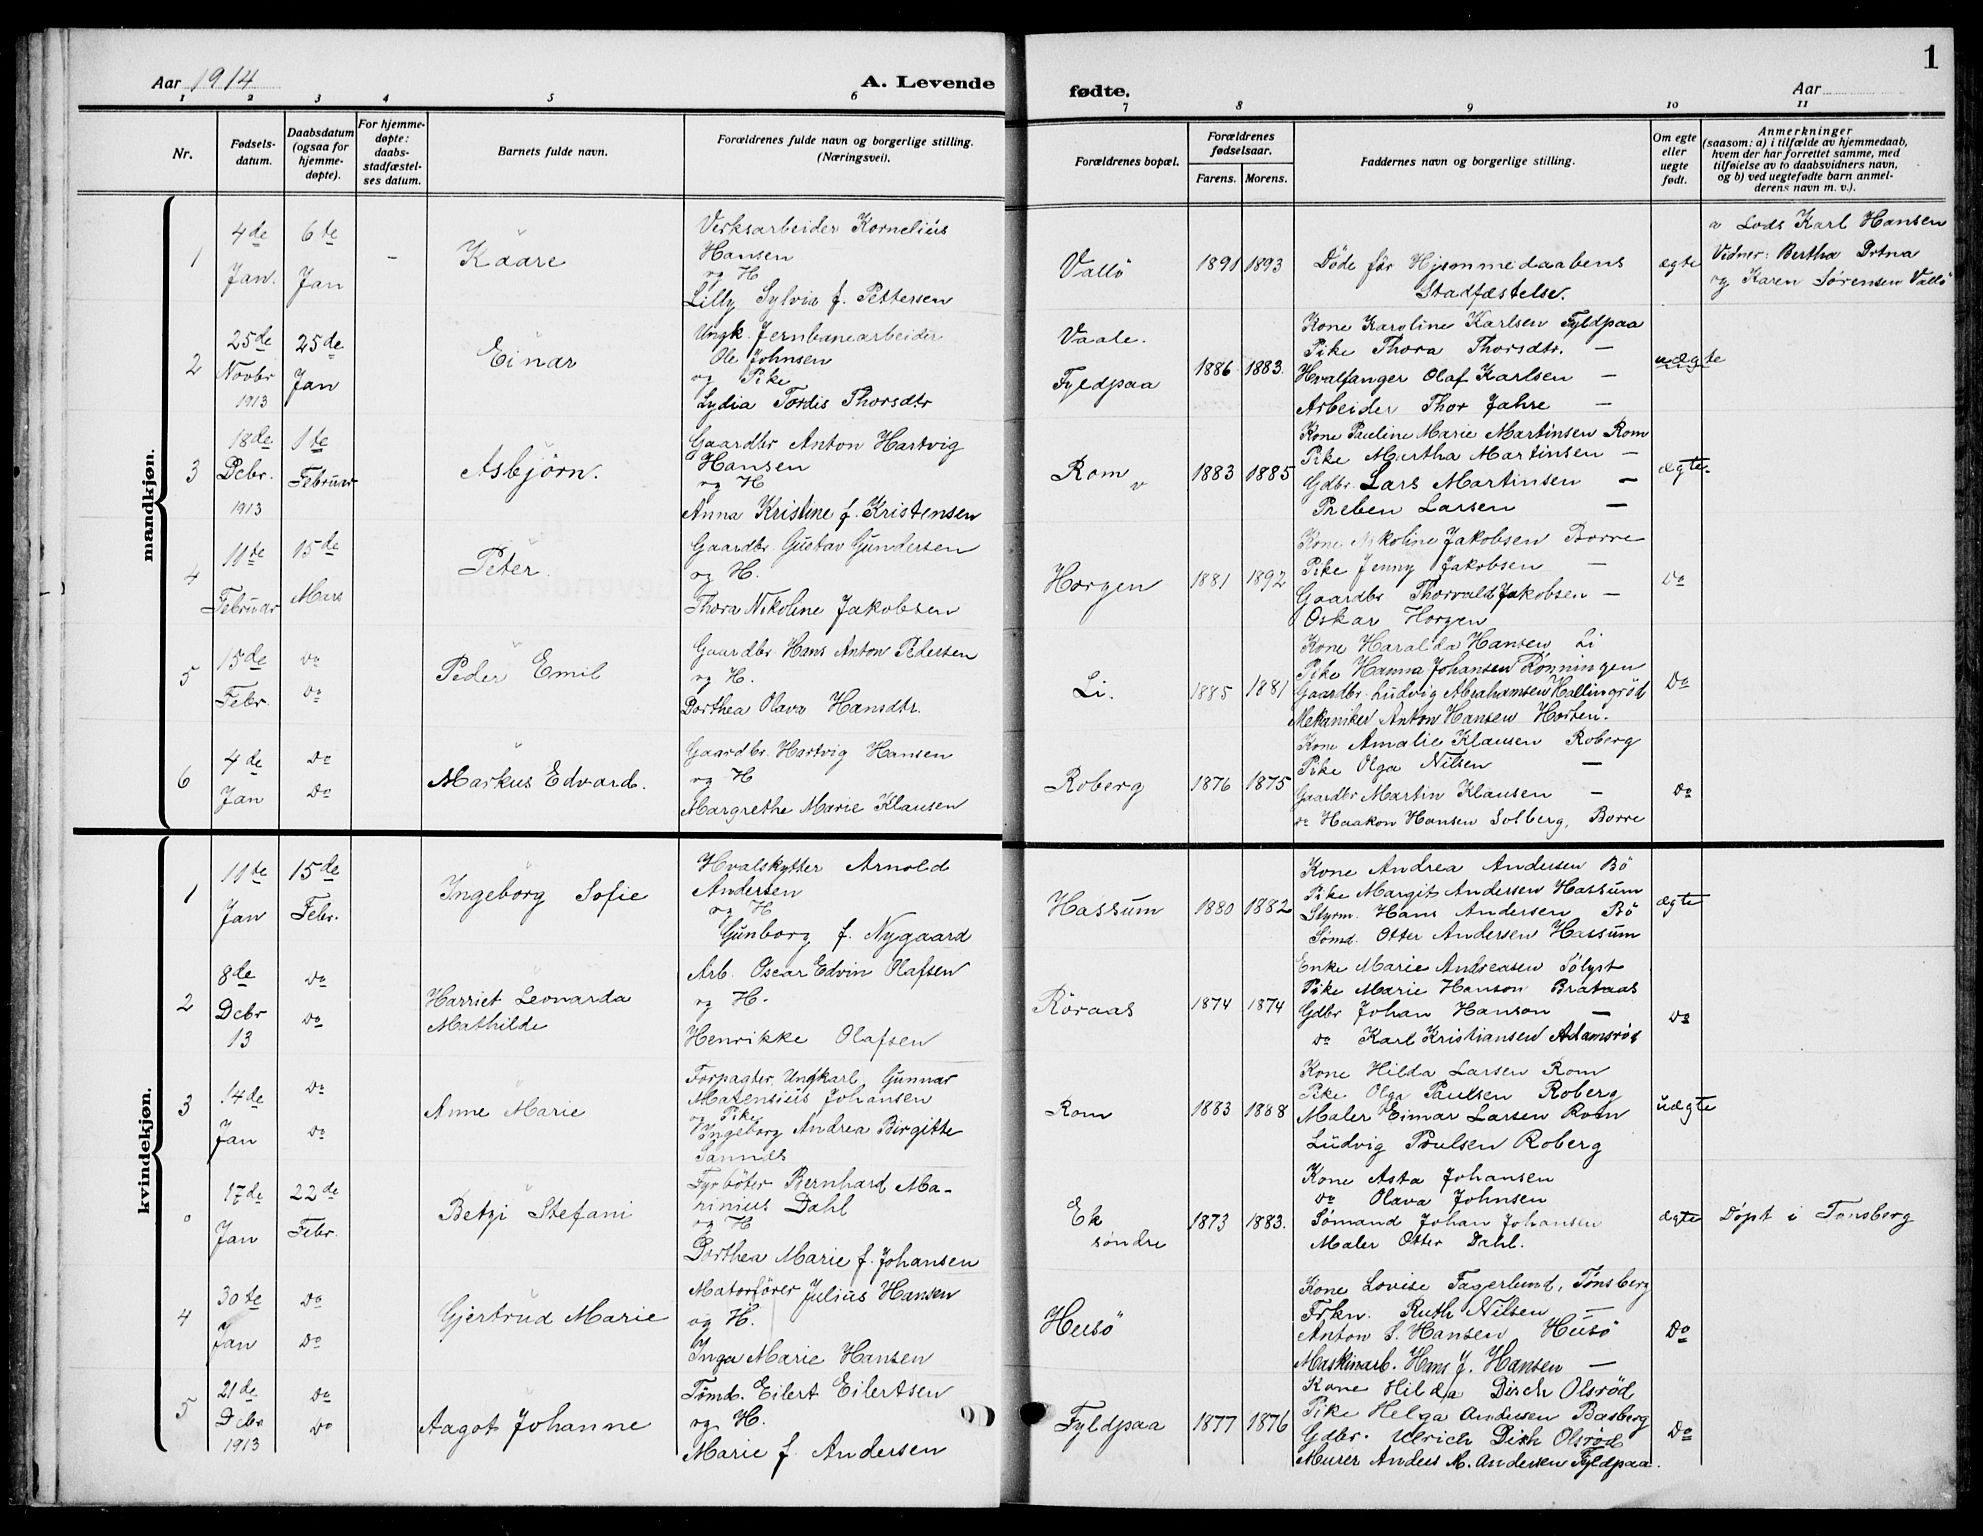 1
Aar 1914
A. Levende fødte.
Aar
1 2 3 4 5 6 7 8 9 10 11
Nr.
Fødsels-
datum.
Daabsdatum
(ogsaa for
hjemme-
døpte).
For hjemme-
døpte:
daabs-
stadfæstel-
ses datum.
Barnets fulde navn.
Forældrenes fulde navn og borgerlige stilling.
(Næringsvei).
Forældrenes bopæl.
Forældrenes
fødselsaar.
Farens. Morens.
Faddernes navn og borgerlige stilling.
Om egte
eller
uegte
født.
Anmerkninger
(saasom: a) i tilfælde av hjemmedaab,
hvem der har forrettet samme, med
tilføielse av to daabsvidners navn,
og b) ved uegtefødte barn anmel-
derens navn m. v.).
mandkjøn.
1
4de
Jan.
6te
Jan
-
Kaare
Verksarbeider Kornelius
Hansen
og H
Lilly Sylvia f. Pettersen
Vallö
1891 1893
Døde før Hjemmedaabens
Stadfæstelse.
ægte
a Lods Karl Hansen
Vidner: Bertha
og Karen Sørensen Vallö
2
25de
Novbr
1913
25de
Jan
Einar
Ungk. Jernbanearbeider
Ole Johnsen
og Pike
Lydia Tordis Thorsdtr
Vaale.
Fyldpaa
1886 1883.
Kone Karoline Karlsen Fyldpaa
Pike Thora Thorsdtr. —
Hvalfanger Olaf Karlsen —
Arbeider Thor Jahre —
uægte
3
18de
Dcbr.
1913
1te
Februar
Asbjörn.
Gaardbr Anton Hartvig
Hansen
og H
Anna Kristine f. Kristensen
Rom v
1883 1885
Kone Pauline Marie Martinsen Rom
Pike Martha Martinsen —
Gdbr. Lars Martinsen —
Preben Larsen —
ægte.
4
11te
Februar
15de
Mars
Peter.
Gaardbr. Gustav Gundersen
og H.
Thora Nikoline Jakobsen
Horgen
1881 1892
Kone Nikoline Jakobsen Borre
Pike Jenny Jakobsen —
Gaardbr Thorvald Jakobsen —
Oskar Horgen
Do
5
15de
Febr.
Do
Do
Peder Emil
Gaardbr. Hans Anton Pedersen
og H.
Dorthea Olava Hansdtr.
Li.
1885 1881
Kone Haralda Hansen Li
Pike Hanna Johansen Rønningen
Gaardbr. Ludvig Abrahamsen Hallingröd
Mekaniker Anton Hansen Horten.
Do
6
4de
Jan
Do
Do
Markus Edvard.
Gaardbr. Hartvig Hansen
og H
Margrethe Marie Klausen
Roberg
1876 1875
Kone Amalie Klausen Roberg
Pike Olga Nilsen —
Gaardbr Martin Klausen —
Do Haakon Hansen Solberg, Borre
Do
kvindekjøn.
1
11te
Jan
15de
Febr.
Ingeborg Sofie
Hvalskytter Arnold
Andersen
og H
Gunborg f. Nygaard
Hassum
1880 1882
Kone Andrea Andersen Bö
Pike Margit Andersen Hassum
Styrm. Hans Andersen Bö
Sømd. Otter Andersen Hassum
ægte
2
8de
Dcbr
13
Do
Do
Harriet Leonarda
Mathilde
Arb. Oscar Edvin Olafsen
og H.
Henrikke Olafsen
Röraas
1874 1874
Enke Marie Andreasen Sölyst
Pike Marie Hanson Brataas
Gdbr Johan Hanson —
Do Karl Kristiansen Adamsröd
Do
3
14de
Jan
Do
Do
Anne Marie
Forpagter, Ungkarl, Gunnar
Matensius Johansen
og Pike
Ingeborg Andrea Birgitte
Sannes
Rom
1883 1888
Kone Hilda Larsen Rom
Pike Olga Paulsen Roberg
Maler Eimar Larsen Rom
Ludvig Poulsen Roberg
uægte
o
17de
Jan
22de
Febr.
Betzi Stefani
Fyrböter Bernhard Ma-
rinius Dahl
og H
Dorthea Marie f. Johansen
Ek
søndre
1873 1883.
Kone Asta Johansen
Do Olava Johnsen
Sømand Johan Johansen
Maler Otter Dahl.
ægte
Døpt i Tønsberg
4
30te
Jan
Do
Do
Gjertrud Marie
Matorfører Julius Hansen
og H.
Inga Marie Hansen
Husö
Kone Lovise Fagerlund, Tønsberg
Frkn. Ruth Nilsen —
Anton S. Hansen Husö
Maskinarb. Hans J. Hansen —
Do
5
21de
Dcbr
1913
Do
Do
Aagot Johanne
Tømd. Eilert Eilertsen
og H.
Marie f. Andersen
Fyldpaa
1877 1876
Kone Hilda Dirch Olsröd
Pike Helga Andersen Basberg
Gdbr. Ulrich Dirch Olsröd
Murer Anders M. Andersen Fyldpaa.
Do